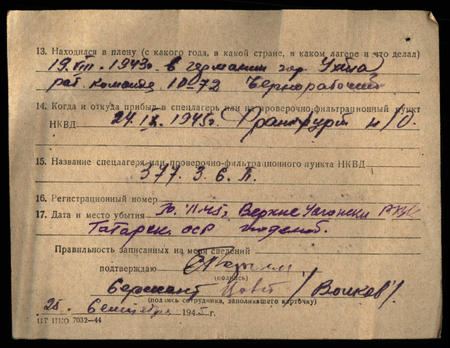 13. Находился в плену (с какого года, в какой стране, в каком лагере и что делал)
19.VIII.1943г. в германии гор.
раб. команде 10-72 Чернорабочий
14. Когда и откуда прибыл в спецлагерь или на проверочно-фильтрационный пункт
НКВД 24.IX.1945г. Франкфурт н/О.
15. Название спецлагеря или проверочно-фильтрационного пункта НКВД
377. З. С. П.
16. Регистрационный номер
17. Дата и место убытия 45г. Верхне
Татарск. сср
Правильность записанных на меня сведений
подтверждаю
(подпись)
Сержант /Волков/.
(подпись сотрудника, заполнявшего карточку)
25. Сентября 1945г.
ЦТ НКО 7032—44